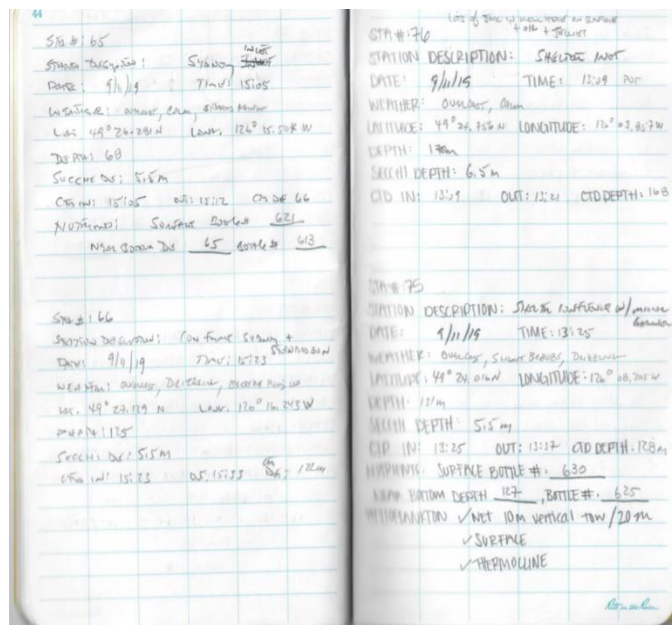 44
STA #: 65
STATION DESCRIPTION: SYDNEY INLET
DATE: 9/11/19 TIME: 15:05
WEATHER: OVERCAST, CALM,
LAT: 49° 26.281 N LONG: 126° 15.504 W
DEPTH: 68
SECCHI DS: 5.5m
CTD IN: 15:05 OUT: 15:12 CTD DE 66
NUTRIENTS: SURFACE BOTTLE # 621
NEAR BOTTOM DS 65 BOTTLE # 613
STA #: 66
STATION DESCRIPTION: CONFLUENCE SYDNEY +
DATE: 9/11/19 TIME: 15:23
WEATHER: OVERCAST,
LAT. 49° 27.139 N LONG. 126° 16.243 W
DEPTH: 125
SECCHI DS: 5.5m
CTD IN: 15:23 15:33 122m
LOTS OF
STA #: 76
STATION DESCRIPTION: SHELTER INLET
DATE: 9/11/19 TIME: 13:09
WEATHER: OVERCAST, CALM
LATITUDE: 49° 24.756 N LONGITUDE: 126°
DEPTH:
SECCHI DEPTH: 6.5m
CTD IN: 13:09 OUT: 13:21 CTD DEPTH: 168
STA #: 75
STATION DESCRIPTION: SHELTER CONFLUENCE W/
DATE: 9/11/19 TIME: 13:25
WEATHER: OVERCAST, SLIGHT BREEZE,
LATITUDE: 49° 24.016 N LONGITUDE: 126°
DEPTH: 131m
SECCHI DEPTH: 5.5m
CTD IN: 13:25 OUT: 13:37 CTD DEPTH: 128m
NUTRIENTS: SURFACE BOTTLE #: 630
NEAR BOTTOM DEPTH 127, BOTTLE #: 625
✓ NET 10m vertical tow / 20m
✓ SURFACE
✓ THERMOCLINE
Rite in the Rain